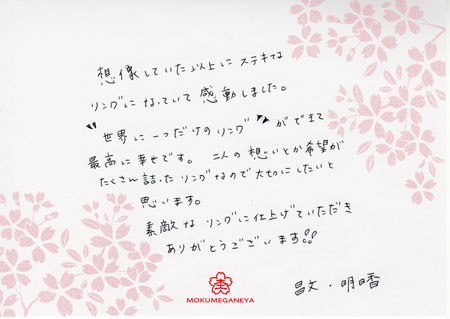 想像していた以上にステキな
リングになっていて感動しました。
"世界に一つだけのリング"ができて
最高に幸せです。二人の想いとか希望が
たくさん詰ったリングなので大切にしたいと
思います。
素敵なリングに仕上げていただき
ありがとうございます!!
MOKUMEGANEYA
昌文・明日香